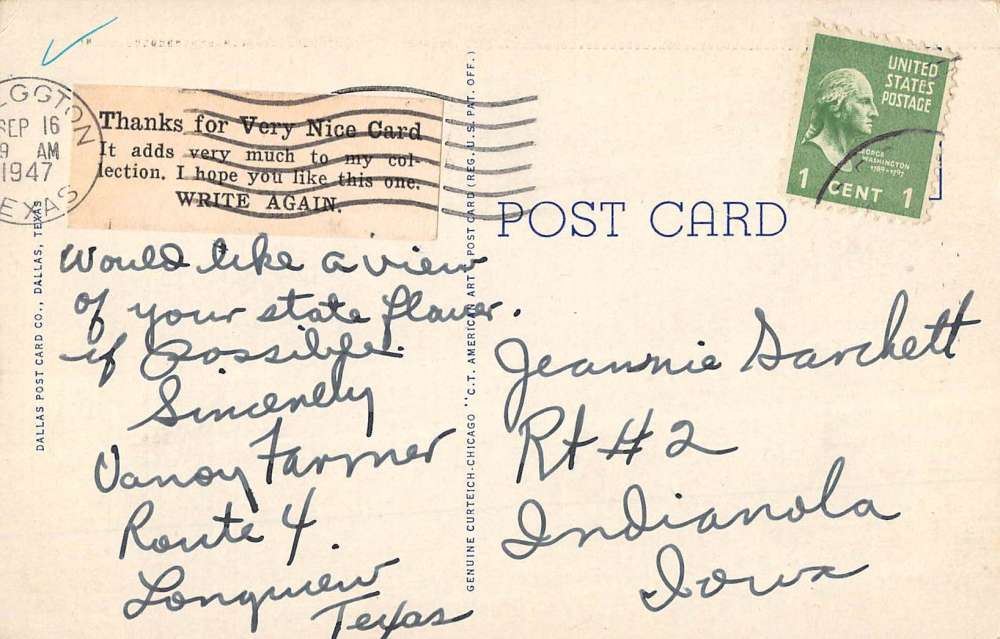 GGTON
SEP 16
9 AM
1947
TEXAS
Thanks for Very Nice Card
It adds very much to my col-
lection. I hope you like this one.
WRITE AGAIN.
Would like a view
of your state flower.
if possible.
Sincerely
Vanoy Farmer
Route 4
Longview
Texas
DALLAS POST CARD CO., DALLAS, TEXAS
GENUINE CURTEICH-CHICAGO "C.T. AMERICAN ART" POST CARD (REG. U.S. PAT. OFF.)
UNITED
STATES
POSTAGE
GEORGE
WASHINGTON
1789-1797
1 CENT 1
POST CARD
Jeannie Sarchett
Rt #2
Indianola
Iowa